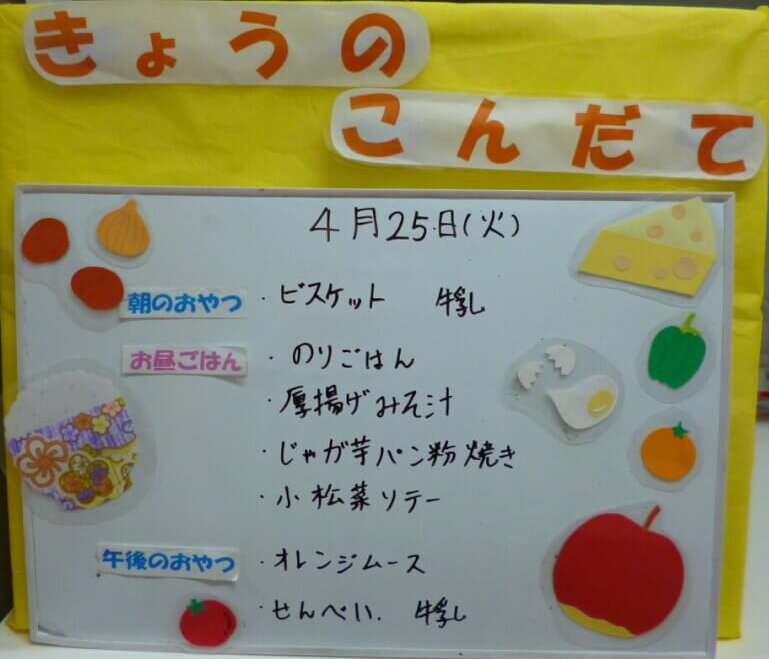 きょうの
こんだて
4月25日(火)
朝のおやつ ・ビスケット 牛乳
お昼ごはん ・のりごはん
・厚揚げみそ汁
・じゃが芋パン粉焼き
・小松菜ソテー
午後のおやつ ・オレンジムース
・せんべい. 牛乳